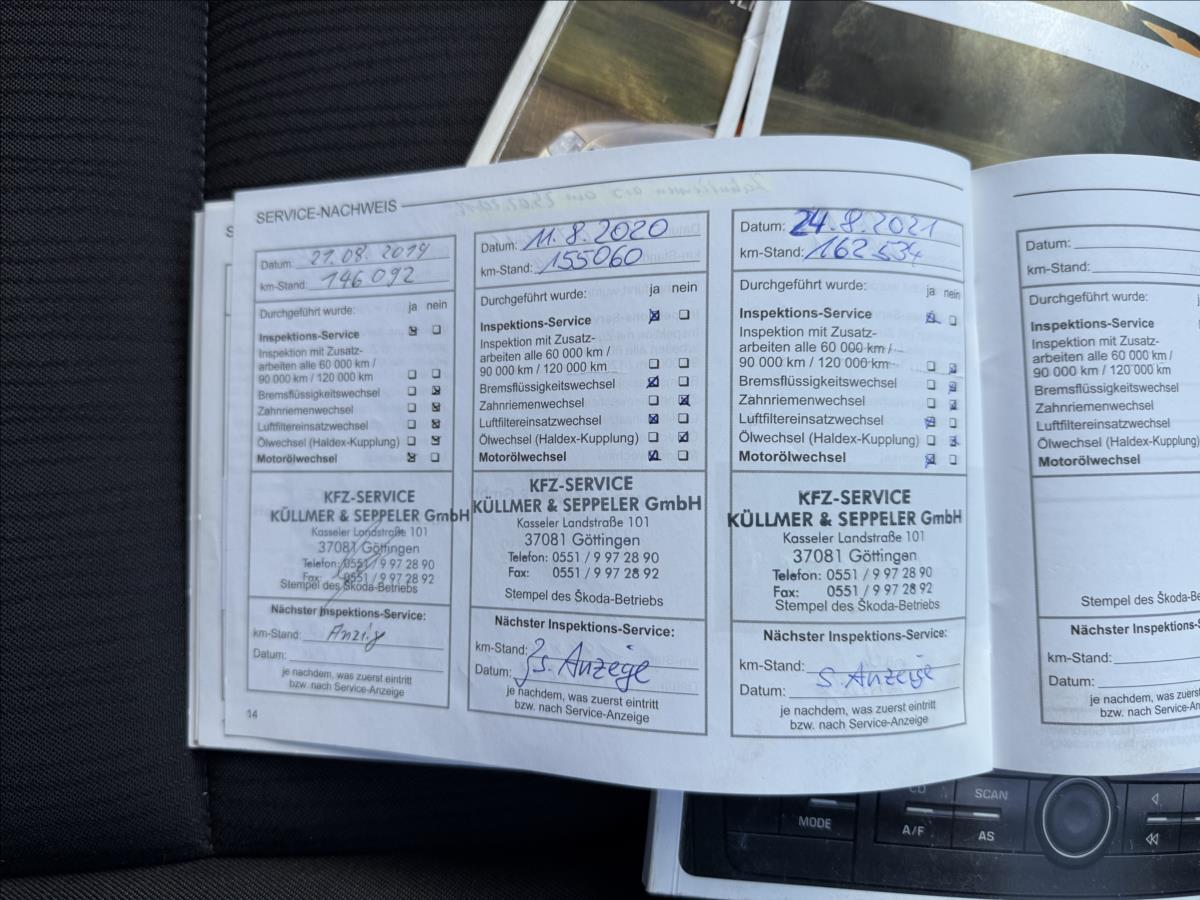 SERVICE-NACHWEIS
Datum: 21.08.2019
km-Stand: 146092
Durchgeführt wurde: ja nein
Inspektions-Service
Inspektion mit Zusatz-
arbeiten alle 60 000 km /
90 000 km / 120 000 km
Bremsflüssigkeitswechsel
Zahnriemenwechsel
Luftfiltereinsatzwechsel
Ölwechsel (Haldex-Kupplung)
Motorölwechsel
KFZ-SERVICE
KÜLLMER & SEPPELER GmbH
Kasseler Landstraße 101
37081 Göttingen
Telefon: 0551 / 9 97 28 90
Fax: 0551 / 9 97 28 92
Stempel des Škoda-Betriebs
Nächster Inspektions-Service:
km-Stand: Anzeig
Datum:
je nachdem, was zuerst eintritt
bzw. nach Service-Anzeige
14
Datum: 11.8.2020
km-Stand: 155060
Durchgeführt wurde: ja nein
Inspektions-Service
Inspektion mit Zusatz-
arbeiten alle 60 000 km /
90 000 km / 120 000 km
Bremsflüssigkeitswechsel
Zahnriemenwechsel
Luftfiltereinsatzwechsel
Ölwechsel (Haldex-Kupplung)
Motorölwechsel
KFZ-SERVICE
KÜLLMER & SEPPELER GmbH
Kasseler Landstraße 101
37081 Göttingen
Telefon: 0551 / 9 97 28 90
Fax: 0551 / 9 97 28 92
Stempel des Škoda-Betriebs
Nächster Inspektions-Service:
km-Stand:
Datum: s. Anzeige
je nachdem, was zuerst eintritt
bzw. nach Service-Anzeige
Datum: 24.8.2021
km-Stand: 162534
Durchgeführt wurde: ja nein
Inspektions-Service
Inspektion mit Zusatz-
arbeiten alle 60 000 km /
90 000 km / 120 000 km
Bremsflüssigkeitswechsel
Zahnriemenwechsel
Luftfiltereinsatzwechsel
Ölwechsel (Haldex-Kupplung)
Motorölwechsel
KFZ-SERVICE
KÜLLMER & SEPPELER GmbH
Kasseler Landstraße 101
37081 Göttingen
Telefon: 0551 / 9 97 28 90
Fax: 0551 / 9 97 28 92
Stempel des Škoda-Betriebs
Nächster Inspektions-Service:
km-Stand:
Datum: s Anzeige
je nachdem, was zuerst eintritt
bzw. nach Service-Anzeige
Datum:
km-Stand:
Durchgeführt wurde:
Inspektions-Service
Inspektion mit Zusatz-
arbeiten alle 60 000 km /
90 000 km / 120 000 km
Bremsflüssigkeitswechsel
Zahnriemenwechsel
Luftfiltereinsatzwechsel
Ölwechsel (Haldex-Kupplung)
Motorölwechsel
Stempel des Škoda-Be
Nächster Inspektions-S
km-Stand:
Datum:
je nachdem, was zuerst
bzw. nach Service-An
CD SCAN
MODE A/F AS